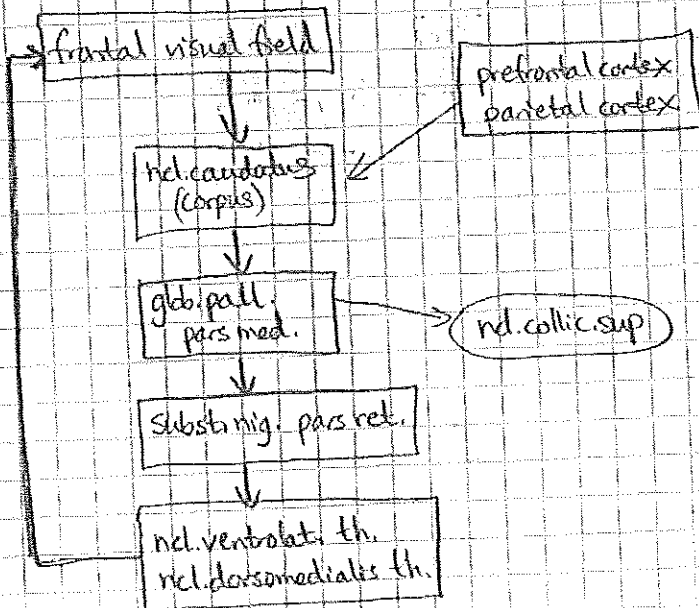 frontal visual field
prefrontal cortex
parietal cortex
ncl. caudatus
(corpus)
glob. pall.
pars med.
ncl. collic. sup
subst. nig. pars ret.
ncl. ventrolat. th.
ncl. dorsomedialis th.